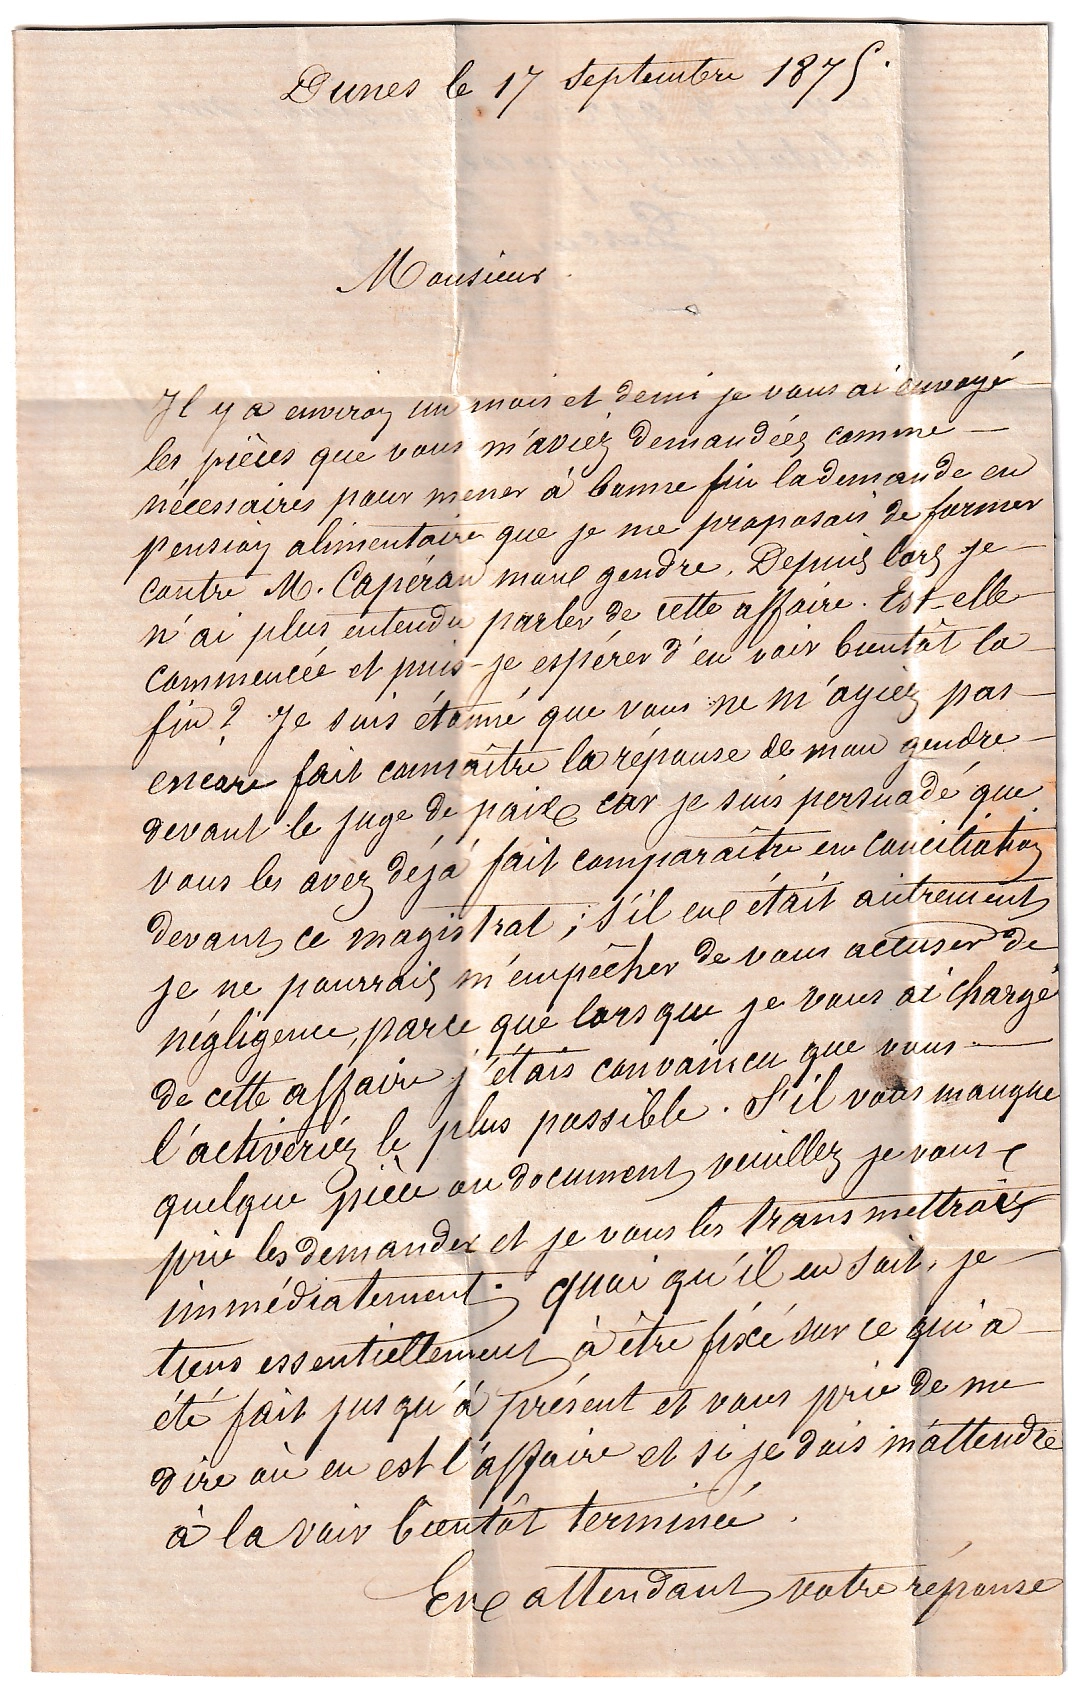 Dunes le 17 Septembre 1875.
Monsieur
Il y a environ un mois et demi je vous ai envoyé
les pièces que vous m'aviez demandées comme
nécessaires pour mener à bonne fin la demande en
pension alimentaire que je me proposais de former
contre M. Capéran mon gendre. Depuis lors je
n'ai plus entendu parler de cette affaire. Est-elle
commencée et puis-je espérer d'en voir bientôt la
fin? Je suis étonné que vous ne m'ayiez pas
encore fait connaître la réponse de mon gendre
devant le juge de paix car je suis persuadé que
vous les avez déjà fait comparaître en conciliation
devant ce magistrat; s'il en était autrement
je ne pourrais m'empêcher de vous accuser de
négligence, parce que lorsque je vous ai chargé
de cette affaire j'étais convaincu que vous
l'activeriez le plus possible. S'il vous manque
quelque pièce ou document veuillez je vous
prie les demander et je vous les transmettrais
immédiatement. Quoi qu'il en soit, je
tiens essentiellement à être fixé sur ce qui a
été fait jusqu'à présent et vous prie de me
dire où en est l'affaire et si je dois m'attendre
à la voir bientôt terminée.
En attendant votre réponse